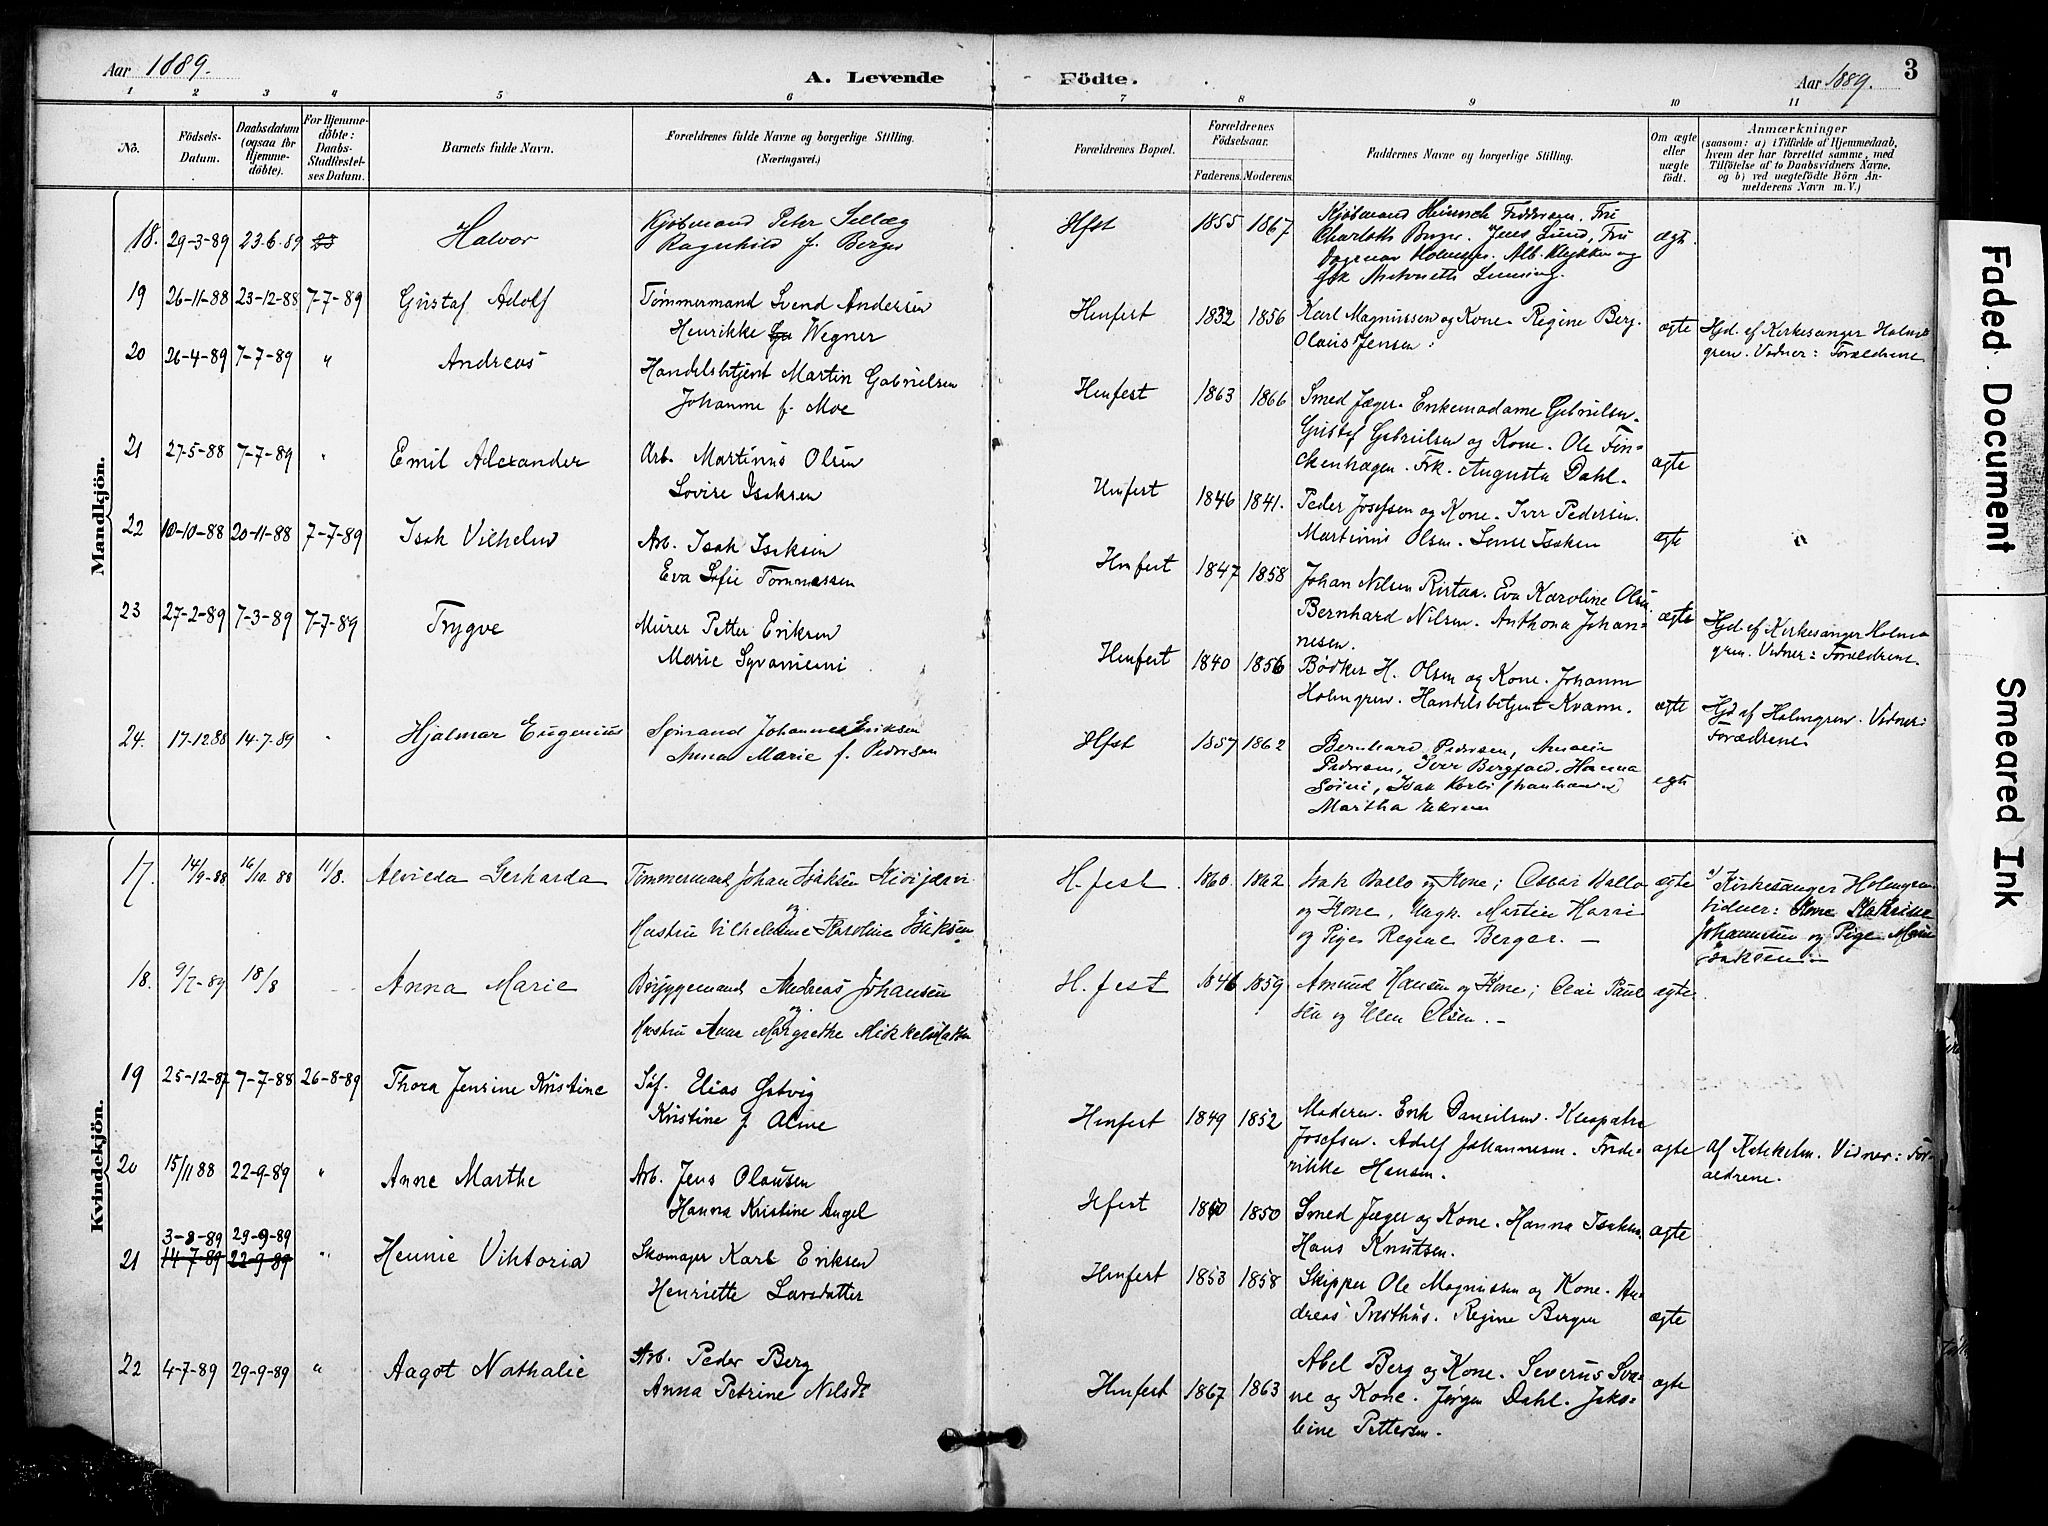 Aar 1889.
A. Levende Födte.
Aar 1889.
3
1 2 3 4 5 6 7 8 9 10 11
No.
Födsels-
Datum.
Daabsdatum
(ogsaa for
Hjemme-
döbte).
For Hjemme-
döbte:
Daabs-
Stadfæstel-
ses Datum.
Barnets fulde Navn.
Forældrenes fulde Navne og borgerlige Stilling.
(Næringsvei.)
Forældrenes Bopæl.
Forældrenes
Födselsaar.
Faderens. Moderens.
Faddernes Navne og borgerlige Stilling.
Om ægte
eller
uægte
födt.
Anmærkninger
(saasom: a) i Tilfælde af Hjemmedaab,
hvem der har forrettet samme, med
Tilföielse af to Daabsvidners Navne,
og b) ved uægtefödte Börn An-
melderens Navn m. V.)
Mandkjön.
18. 29-3-89 23.6.89 Halvor
Kjøbmand Peter
Ragnhild f. Berger
Hfst 1855 1867
Kjøbmand Heinrich Feddersen. Fru
Charlotte Berger. Jens Lund, Fru
Dagmar
ægt.
19 26-11-88 23-12-88 7-7-89 Gustaf Adolf
Tømmermand Svend Andersen
Henrikke Wegner
Hmfest 1832 1856
Karl Magnussen og Kone. Regine Berg.
Olaus Jensen.
ægte
Hjd. af Kirkesanger Holm-
gren. Vidner: Forældrene
20 26-4-89 7-7-89 " Andreas
Handelsbetjent Martin Gabrielsen
Johanne f. Moe
Hmfest 1863 1866
Smed Jæger. Enkemadame Gabrielsen.
Gustaf Gabrielsen og Kone. Ole Fin-
ckenhagen. Frk. Augusta Dahl.
ægte
21 27-5-88 7-7-89 " Emil Alexander
Arb. Martinus Olsen
Lovise Isaksen
Hmfest 1846 1841.
Peder Josefsen og Kone. Iver Pedersen.
Martinus Olsen. Isaksen
ægte
22 10-10-88 20-11-88 7-7-89 Isak Vilhelm
Arb. Isak Isaksen
Eva Sofie Tommassen
Hmfest 1847 1858
Johan Nilsen Ristaa. Eva Karoline Olsen
Bernhard Nilsen. Anthona Johan-
nesen.
ægte
Hjd. af Kirkesanger Holm-
gren. Vidner: Forældrene.
23 27-2-89 7-3-89 7-7-89 Trygve
Murer Petter Eriksen
Marie Syvaniemi
Hmfest 1840 1856
Bødker H. Olsen og Kone. Johanne
Holmgren. Handelsbetjent Kvam.
ægte
Hjd af Holmgren. Vidner:
Forældrene
24. 17-12 88 14-7-89 Hjalmar Eugenius
Sømand Johannes Eriksen
Anna Marie f. Pedersen
Hfst 1857 1862
Bernhard Pedersen, Amalie
Pedersen, Iver Bergfald. Hanna
Martha
egte
Kvindekjön.
17. 14/9-88 16/10 88 11/8. Alvilda Gerharda
Tømmermand Johan Isaksen Kivijærvi
og
Hustru Vilhelmine Karoline Eriksen
H.fest. 1860. 1862.
Isak Ballo og Kone; Oscar Ballo
og Kone, Ungk. Martin Harri
og Pige Regine Berger. —
ægte
Kirkesanger Holmgren.
Vidner: Kone Kathrine
Johannesen og Pige Marie
Isaksen. —
18. 9/7-89 18/8 Anna Marie
Bryggemand Andreas Johansen
og
Hustru Anne Margrethe Mikkelsdatter
H.fest 1846 1859
Amund Hansen og Kone; Paul
sen og Ellen Olsen. —
ægte.
19 25-12-87 7-7-88 26-8-89 Thora Jensine Kristine
Søf. Elias Østvig
Kristine f. Aline
Hmfest 1849 1852
Moderen. Erik Danielsen. Kleopatra
Josefsen. Adolf Johannesen. Frede-
rikke Hansen.
ægte
af Vidner: For-
ældrene.
20 15/11 88 22-9-89 " Anne Marthe
Arb. Jens Olausen
Hanna Kristine Angel
Hfest 1850
Smed Jæger og Kone. Hanna Isaksen
Hans Knutsen.
ægte
21 3-8-89 29-9-89
14-7-89 22-9-89 " Hennie Viktoria
Skomager Karl Eriksen
Henriette Larsdatter
Hmfest 1853 1858
Skipper Ole Magnussen og Kone. An-
dreas Presthus. Regine Berger
ægte
22 4-7-89 29-9-89 " Aagot Nathalie
Arb. Peder Berg
Anna Petrine Nilsdt
Hmfest 1867 1863
Abel Berg og Kone. Severus Sva-
ne og Kone. Jørgen Dahl. Jako-
bine Pettersen.
ægte
Faded Document
Smeared Ink